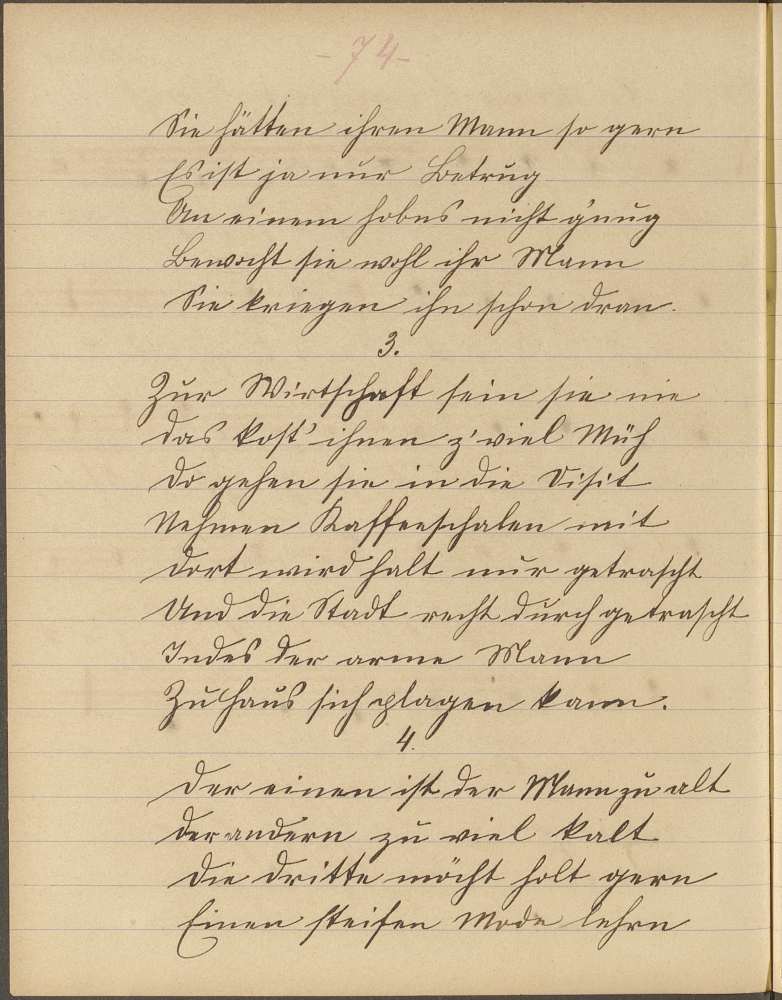 - 74 -
Sie hätten ihren Mann so gern
Es ist ja nur Betrug
An einem hobns nicht g'nug
Bewacht sie wohl ihr Mann
Sie kriegen ihn schon dran.
3.
Zur Wirtschaft sein sie nie
das kost' ihnen z'viel Müh
Do gehen sie in die Visit
Nehmen Kaffeeschalen mit
dort wird halt nur getrascht
Und die Stadt recht durchgetrascht
Indes der arme Mann
Zu Haus sich plagen kann.
4.
Der einen ist der Mann zu alt
der andern zu viel kalt
Die dritte möcht holt gern
Einen steifen Mode lehrn